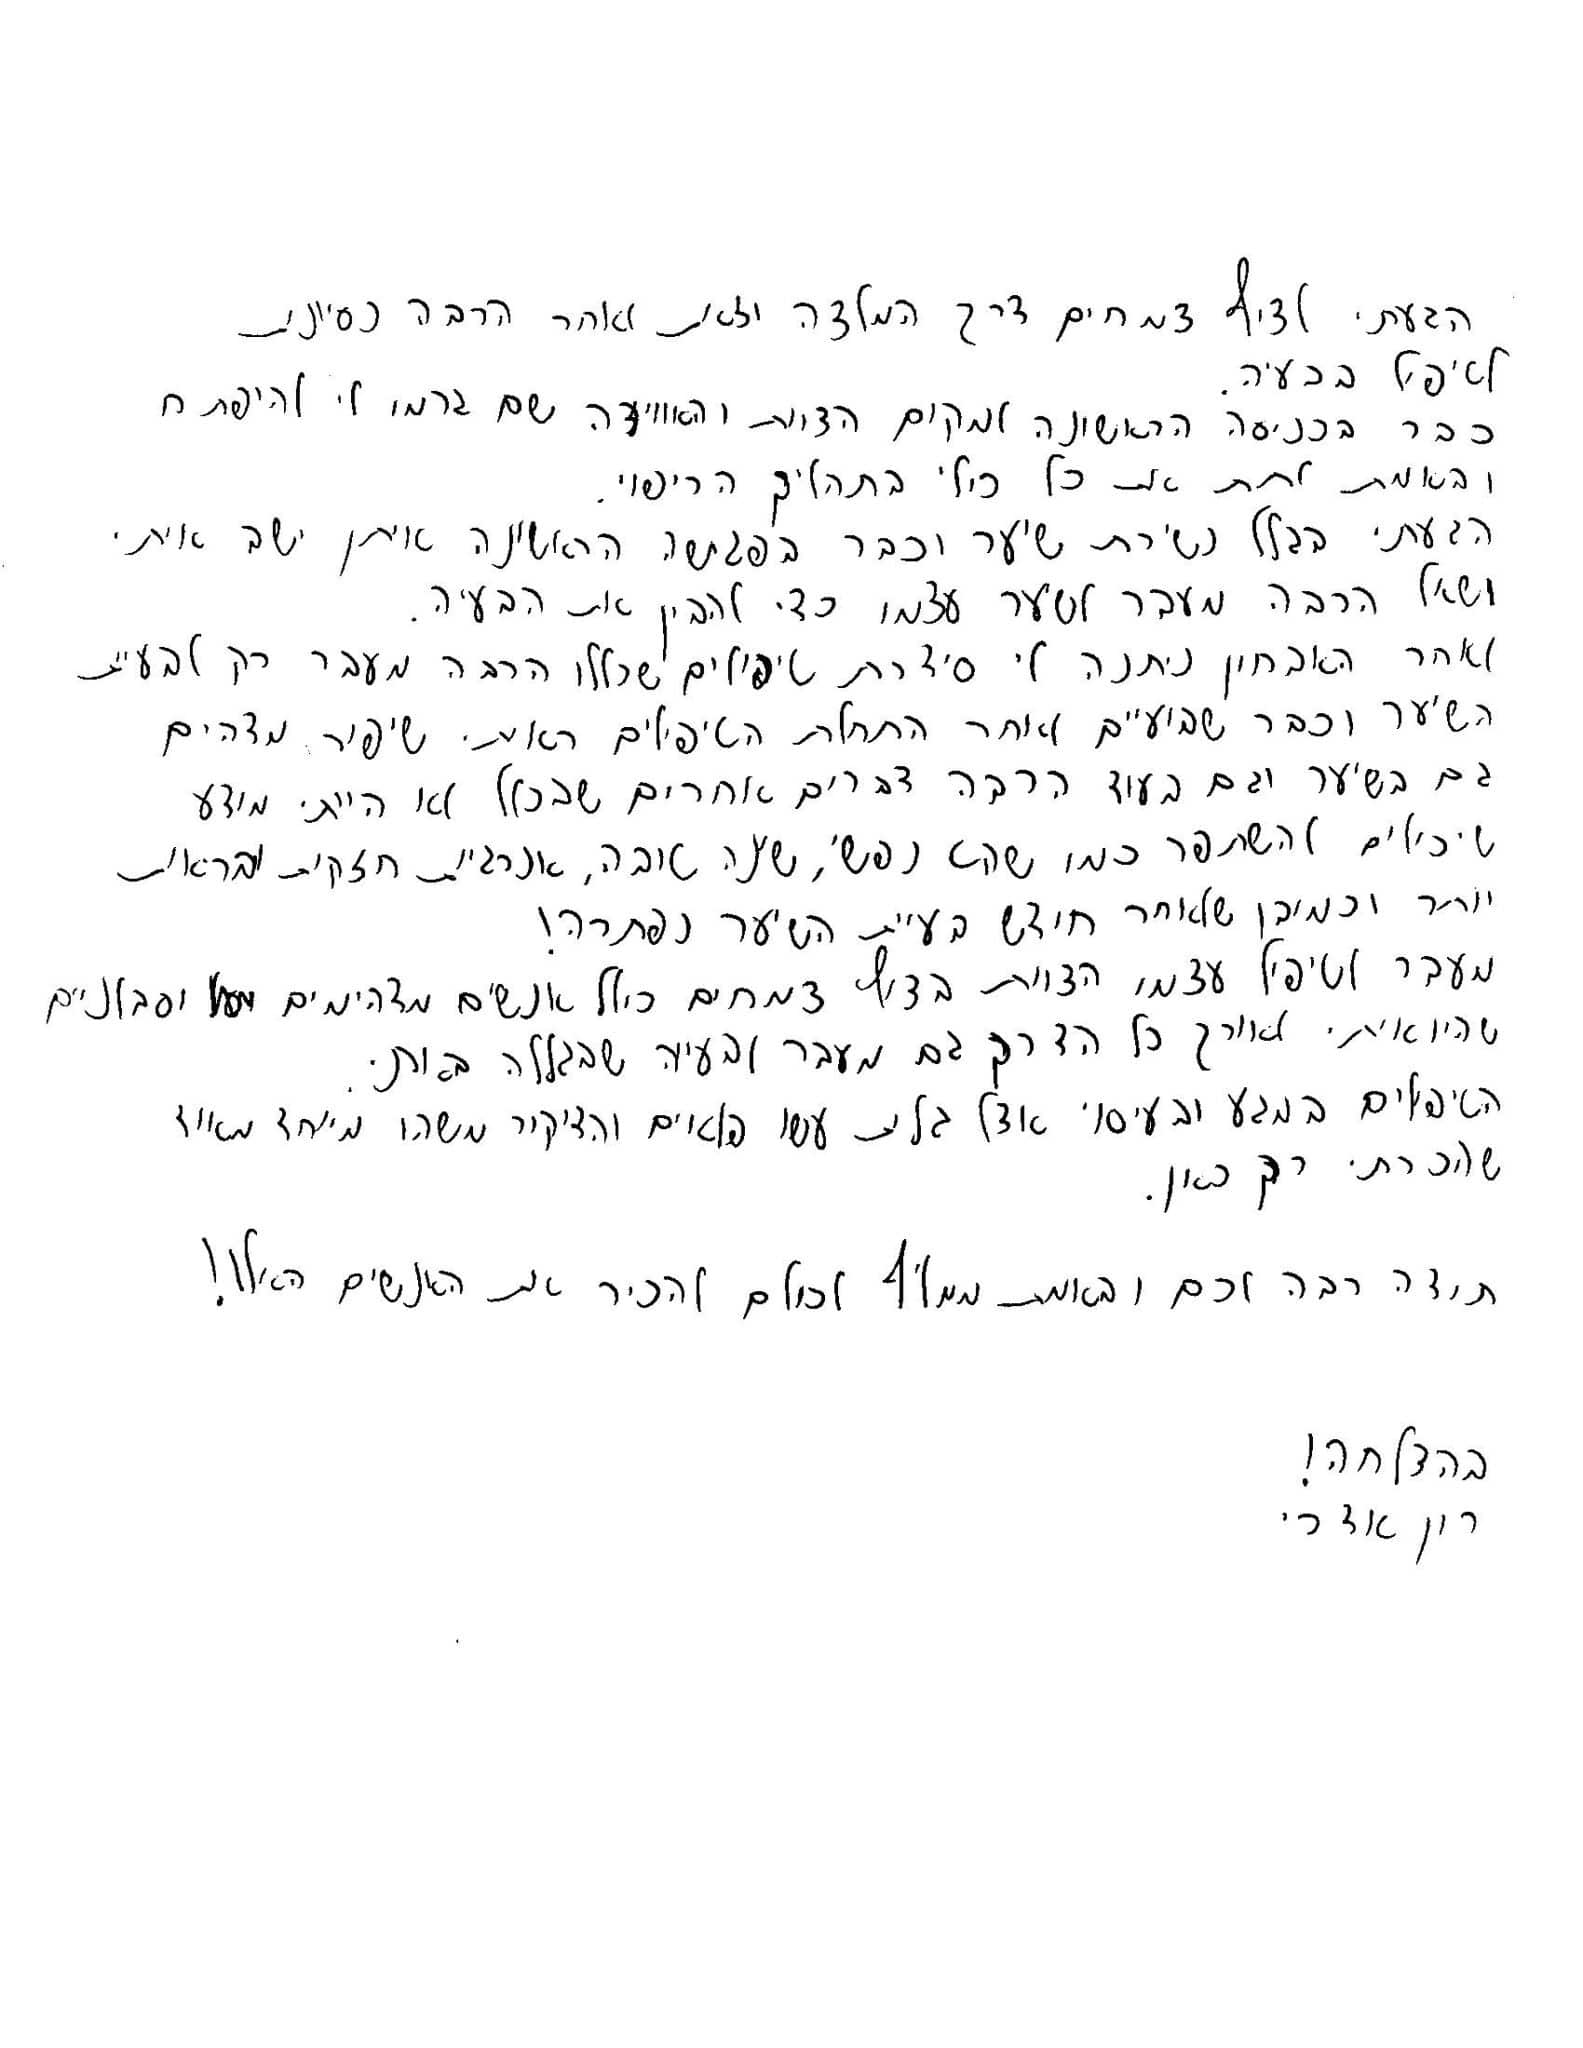 הגעתי לציף צמחים דרך המלצה וזאת לאחר הרבה נסיונות
לטיפול בבעיה.
כבר בכניסה הראשונה למקום הצוות והאווירה שם גרמו לי להיפתח
ובאמת לתת את כל כולי בתהליך הריפוי.
הגעתי בגלל נשירת שיער וכבר בפגישה הראשונה איתן ישב איתי
ושאל הרבה מעבר לשיער עצמו כדי להבין את הבעיה.
לאחר האבחון ניתנה לי סידרת טיפולים שכללו הרבה מעבר רק לבעיית
השיער וכבר שבועיים לאחר התחלת הטיפולים ראיתי שיפור מדהים
גם בשיער וגם בעוד הרבה דברים אחרים שבכלל לא הייתי מודע
שיכולים להשתפר כמו שקט נפשי, שינה טובה, אנרגיות חזקות ובריאות
יותר וכמובן שלאחר חודש בעיית השיער נפתרה!
מעבר לטיפול עצמו הצוות בציף צמחים כולל אנשים מדהימים וסבלניים
שהיו איתי לאורך כל הדרך גם מעבר לבעיה שבגללה באתי.
הטיפולים במגע ובעיסוי אצל גלית עשו פלאים והדיקור משהו מיוחד מאוד
שהכרתי רק כאן.
תודה רבה לכם ובאמת ממליץ לכולם להכיר את האנשים האלו!!
בהצלחה!
רון אדרי